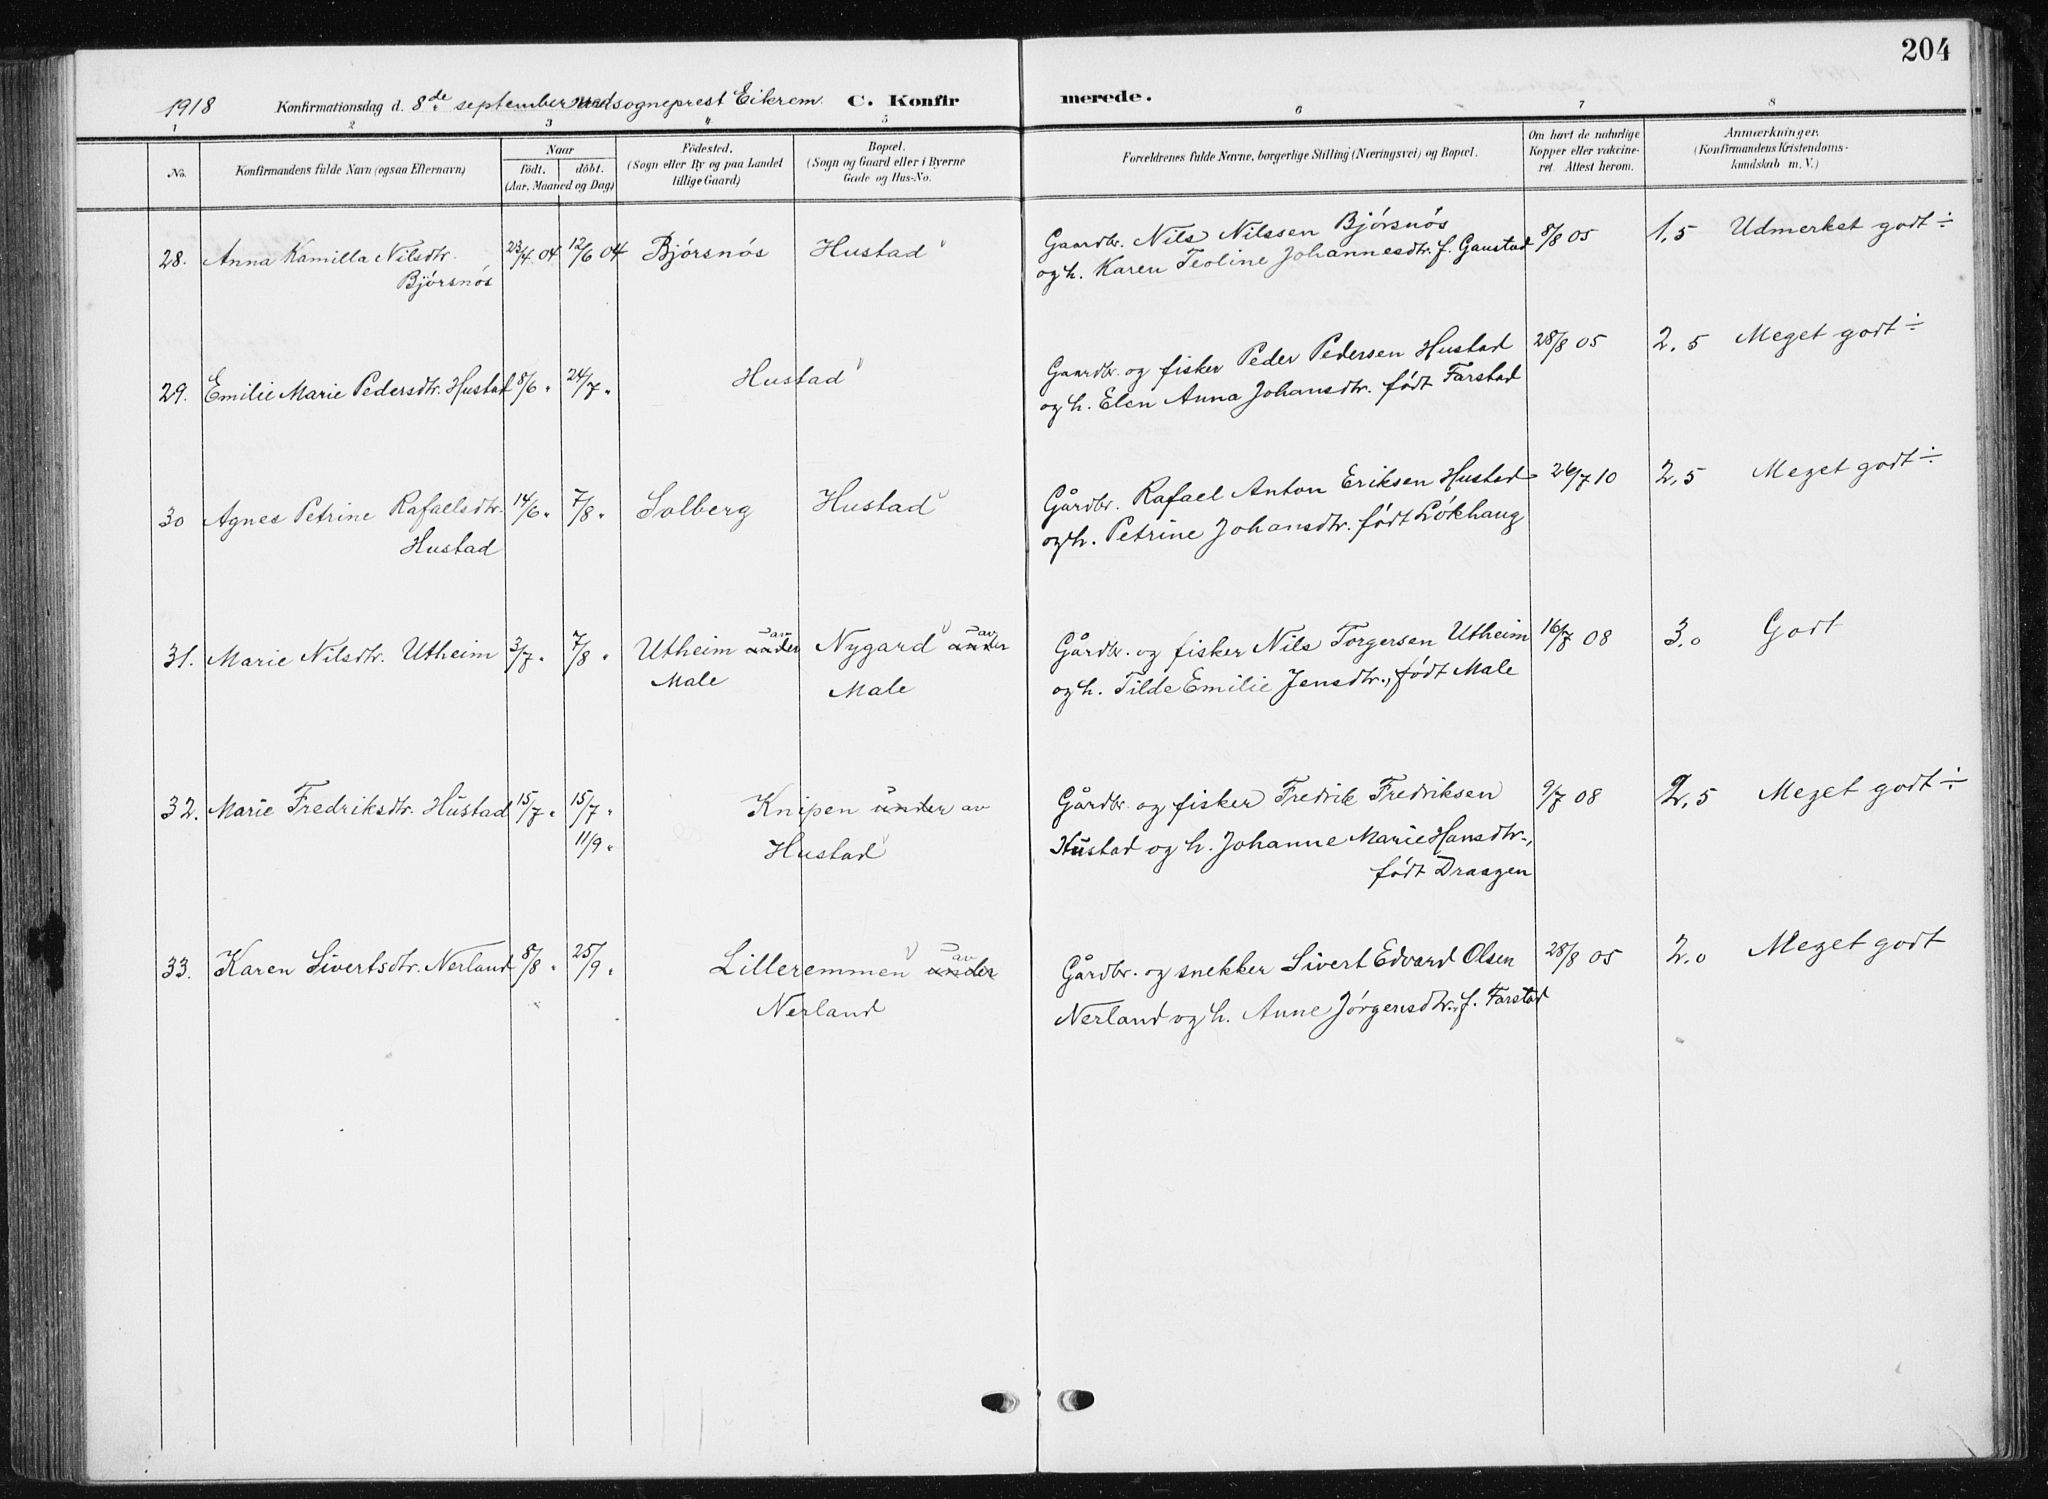 204
1918 Konfirmationsdag d. 8de september ved sogneprest Eikrem. C. Konfirmerede.
1 2 3 4 5 6 7 8
No.
Konfirmandens fulde Navn (ogsaa Efternavn)
Naar
født. døbt.
(Aar, Maaned og Dag)
Födested.
(Sogn eller By og paa Landet
tillige Gaard)
Bopæl.
(Sogn og Gaard eller i Byerne
Gade og Hus-No.
Forældrenes fulde Navne, borgerlige Stilling (Næringsvei) og Bopæl.
Om havt de naturlige
Kopper eller vakcine-
ret. Attest herom.
Anmærkninger.
(Konfirmandens Kristendoms-
kundskab m. V.)
28. Anna Kamilla Nilsdtr. 23/4 04 12/6 04 Bjørsnøs Hustad Gaardbr. Nils Nilssen Bjørsnøs 8/8 05 1,5 Udmerket godt ÷
Bjørsnøs og h. Karen Teoline Johannesdtr. f. Gaustad
29. Emilie Marie Pedersdtr. Hustad 8/6 " 24/7 " Hustad Gaardbr. og fisker Peder Pedersen Hustad 28/8 05 2,5 Meget godt ÷
og h. Elen Anna Johansdtr. født Farstad
30 Agnes Petrine Rafaelsdtr. 14/6 " 7/8 " Solberg Hustad Gårdbr. Rafael Anton Eriksen Hustad 26/7 10 2,5 Meget godt ÷
Hustad og h. Petrine Johansdtr. født Løkhaug
31. Marie Nilsdtr. Utheim 3/7 " 7/8 " Utheim under av Nygard under av Gårdbr. og fisker Nils Torgersen Utheim 16/7 08 3.0 Godt
Male Male og h. Tilde Emilie Jensdtr., født Male
32. Marie Fredriksdtr. Hustad 15/7 " 15/7 " Knipen under av Gårdbr. og fisker Fredrik Fredriksen 9/7 08 2,5 Meget godt ÷
11/9 " Hustad Hustad og h. Johanne Marie Hansdtr.,
født Draagen
33. Karen Sivertsdtr. Nerland 8/8 " 25/9 " Lilleremmen under av Gårdbr. og snekker Sivert Edvard Olsen 28/8 05 2.0 Meget godt
Nerland Nerland og h. Anne Jørgensdtr., f. Farstad